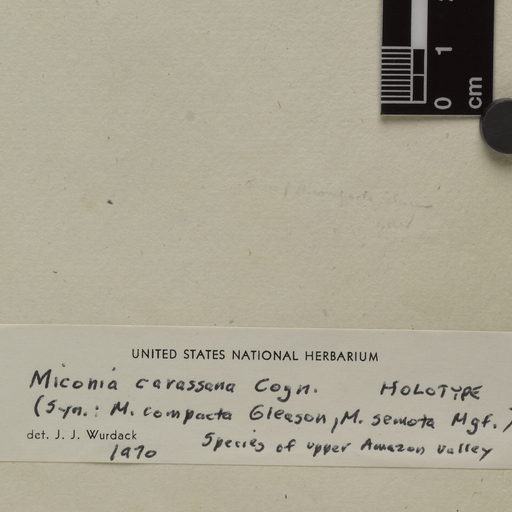 0 1
cm
UNITED STATES NATIONAL HERBARIUM
Miconia carassana Cogn. HOLOTYPE
(Syn.: M. compacta Gleason, M. semota Mgf.)
det. J. J. Wurdack Species of upper Amazon valley
1970